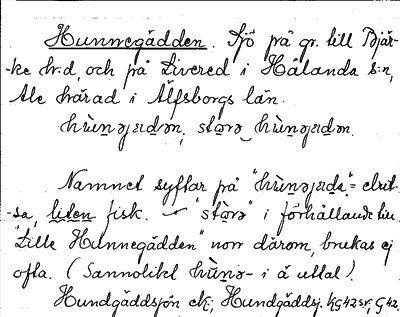 Hunnegädden. Sjö på gr. till Bjär-
-ke hr:d, och på Livered i Hålanda s:n,
Ale härad i Älfsborgs län.
hùnəjɛdən, stɑrə hùnəjɛdən.
Namnet syftar på "hùnəjɛda" = elrit-
-sa, liten fisk. – "stɑrə" i förhållande till
"Lille Hunnegädden" norr därom, brukas ej
ofta. (Sannolikt hùnə- i ä uttal).
Hundgäddsjön ek; Hundgäddsj. kG42sv, G42.